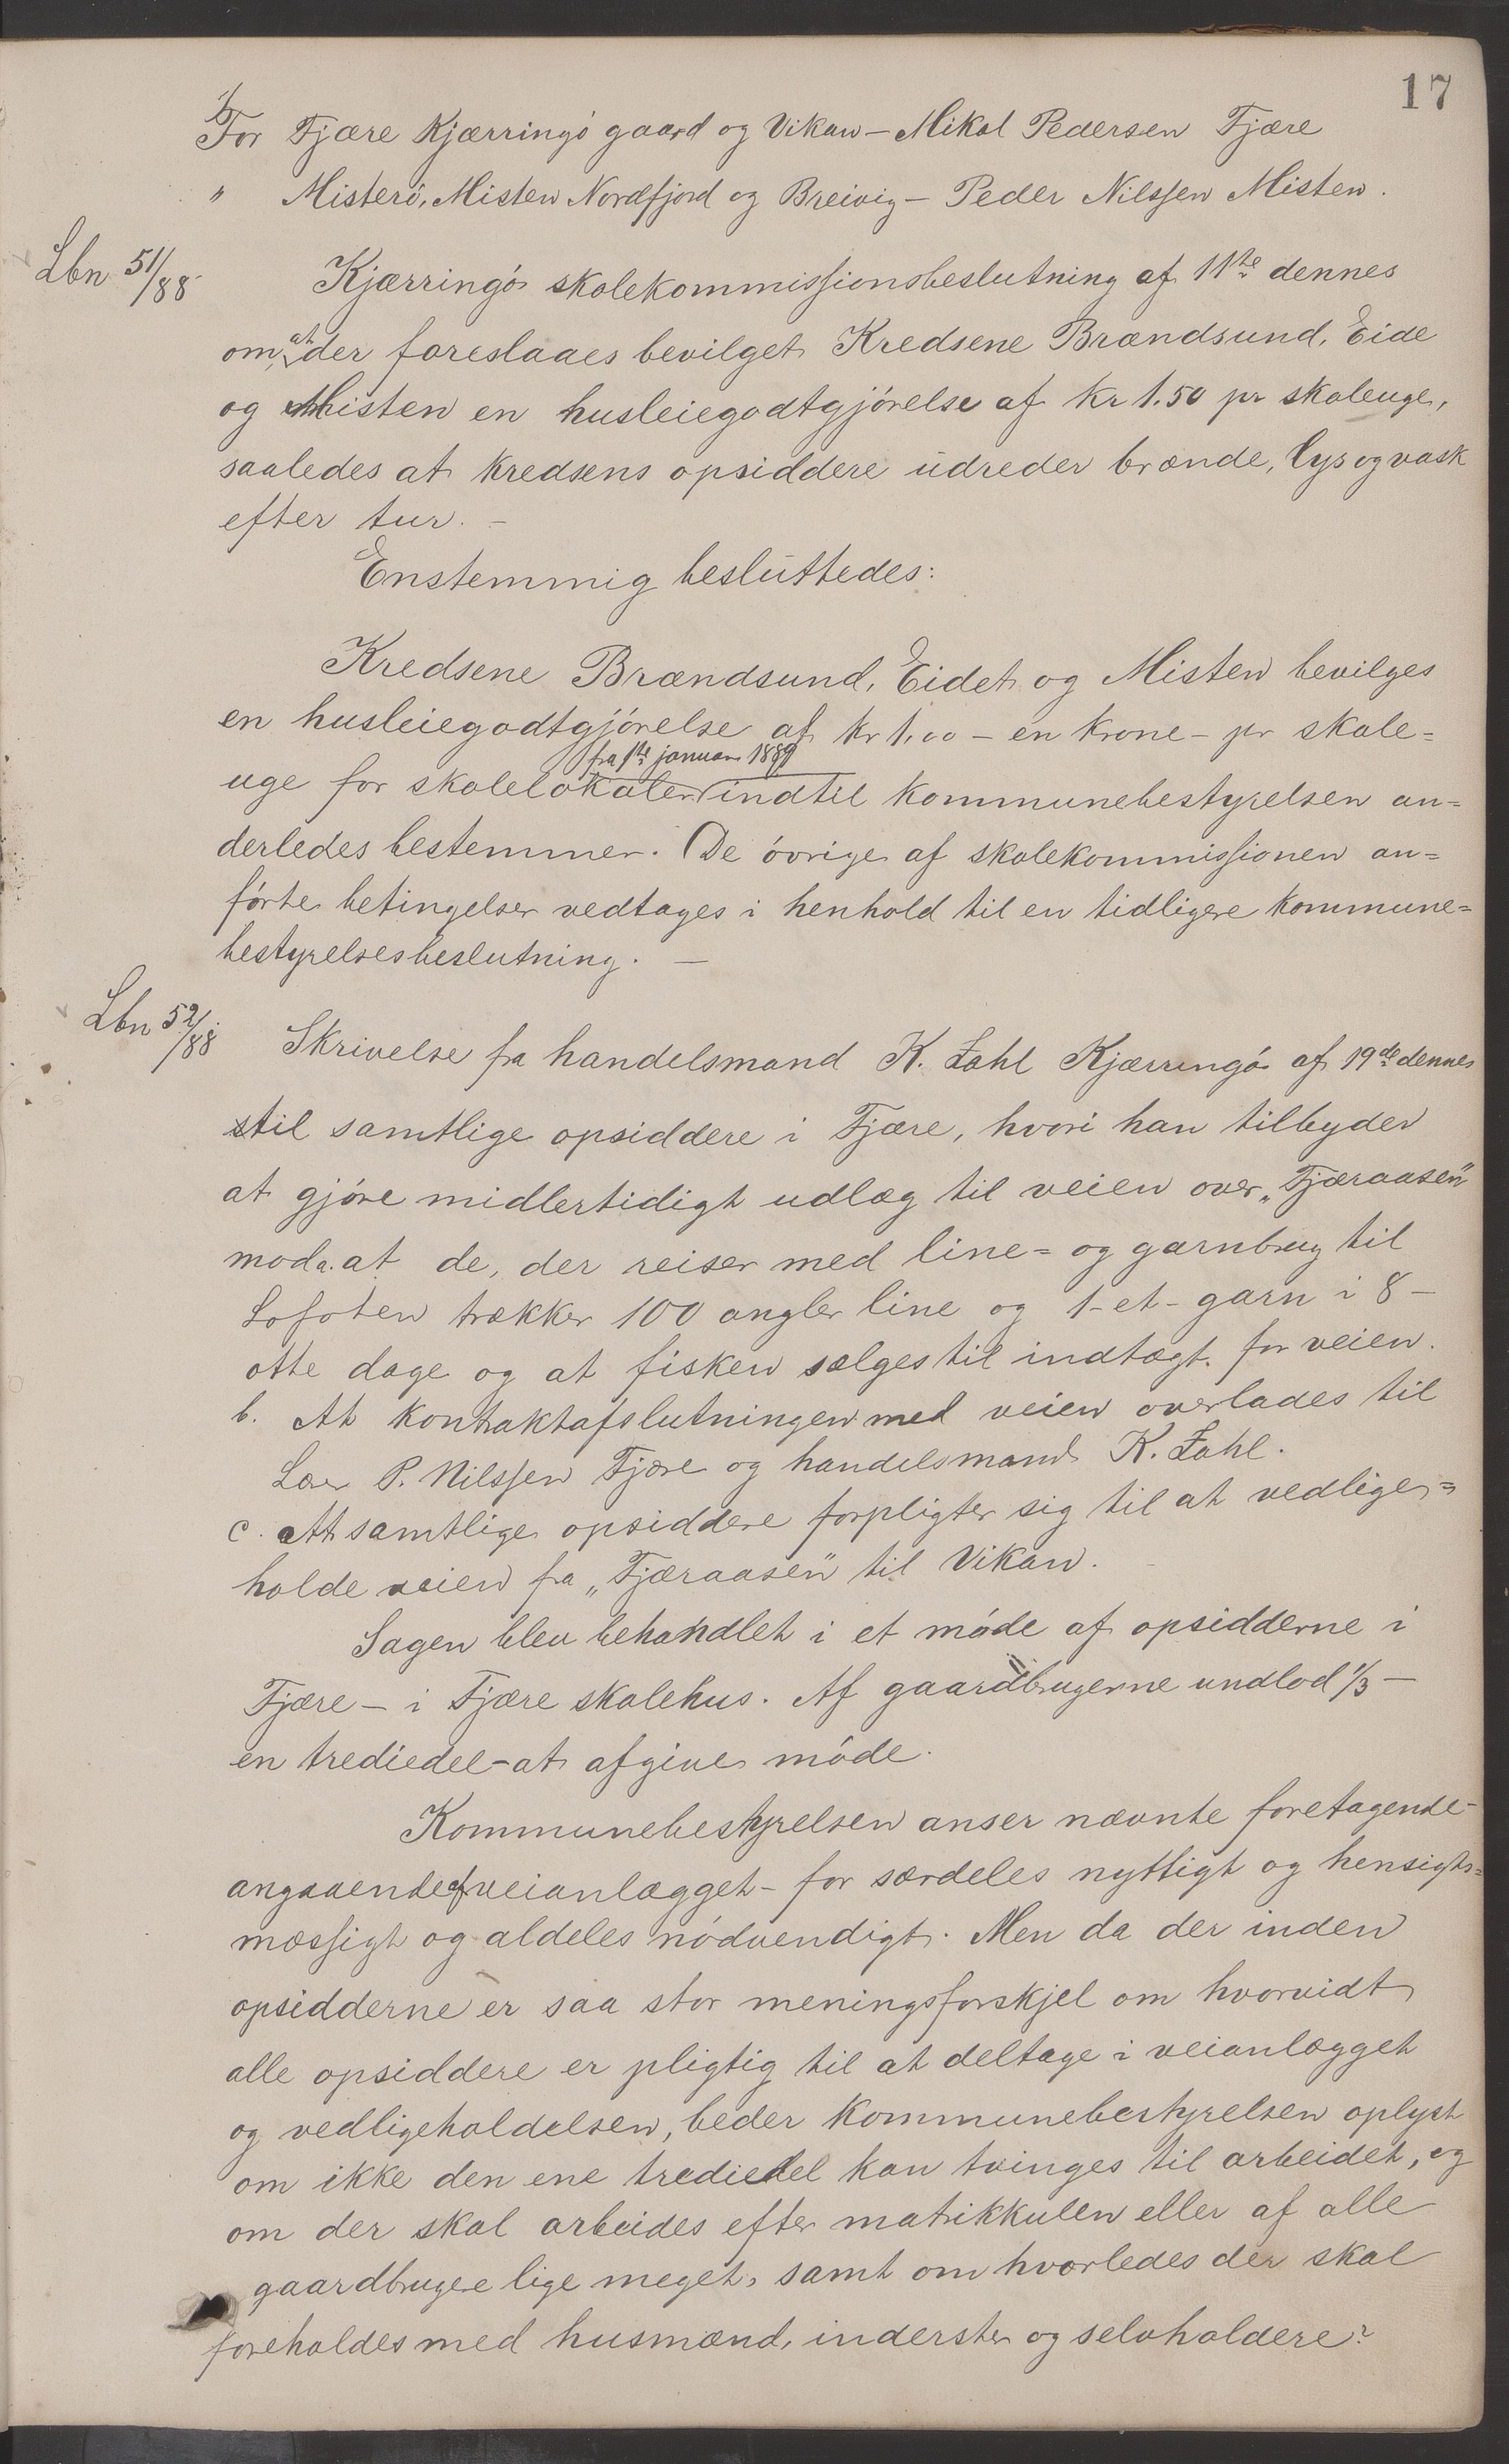 17
For Fjære Kjærringö gaard og Vikan – Mikal Pedersen Fjære
" Misterö, Misten Nordfjord og Breivig – Peder Nilssen Misten.
Lbn 51/88
Kjærringö skolekommissionsbeslutning af 11te dennes
om, at der foreslaaes bevilget Kredsene Brændsund, Eide
og Misten en husleiegodtgjörelse af kr 1.50 pr skoleuge,
saaledes at kredsens opsiddere udreder brænde, lys og vask
efter tur. –
Enstemmig besluttedes:
Kredsene Brændsund, Eidet og Misten bevilges
en husleiegodtgjörelse af kr 1,00 – en krone – pr skole=
fra 1ste januar 1889
uge for skolelokaler indtil kommunebestyrelsen an=
derledes bestemmer. De övrige af skolekommissionen an=
förte betingelser vedtages i henhold til en tidligere kommune=
bestyrelsesbeslutning. –
Lbn 52/88
Skrivelse fra handelsmand K. Zahl Kjærringö af 19de dennes
til samtlige opsiddere i Fjære, hvori han tilbyder
at gjöre midlertidigt udlæg til veien over „Fjæraasen"
mod a. at de, der reiser med line= og garnbrug til
Lofoten trækker 100 angler line og 1 - et - garn i 8 –
otte dage og at fisken sælges til indtægt for veien.
b. At kontraktafslutningen med veien overlades til
Lær P. Nilssen Fjære og handelsmand K. Zahl.
c. At samtlige opsiddere forpligter sig til at vedlige=
holde veien fra „Fjæraasen" til Vikan.
Sagen blev behandlet i et möde af opsidderne i
Fjære – i Fjære skolehus. Af gaardbrugerne undlod 1/3 –
en trediedel – at afgive möde.
Kommunebestyrelsen anser nævnte foretagende –
angaaende veianlægget – for særdeles nyttigt og hensigts=
mæssigt og aldeles nödvendigt. Men da der inden
opsidderne er saa stor meningsforskjel om hvorvidt
alle opsiddere er pligtig til at deltage i veianlægget
og vedligeholdelsen, beder kommunebestyrelsen oplyst
om ikke den ene trediedel kan tvinges til arbeidet, og
om der skal arbeides efter matrikkulen eller af alle
gaardbrugere lige meget, samt om hvorledes der skal
foreholdes med husmænd, inderster og selvholdere?